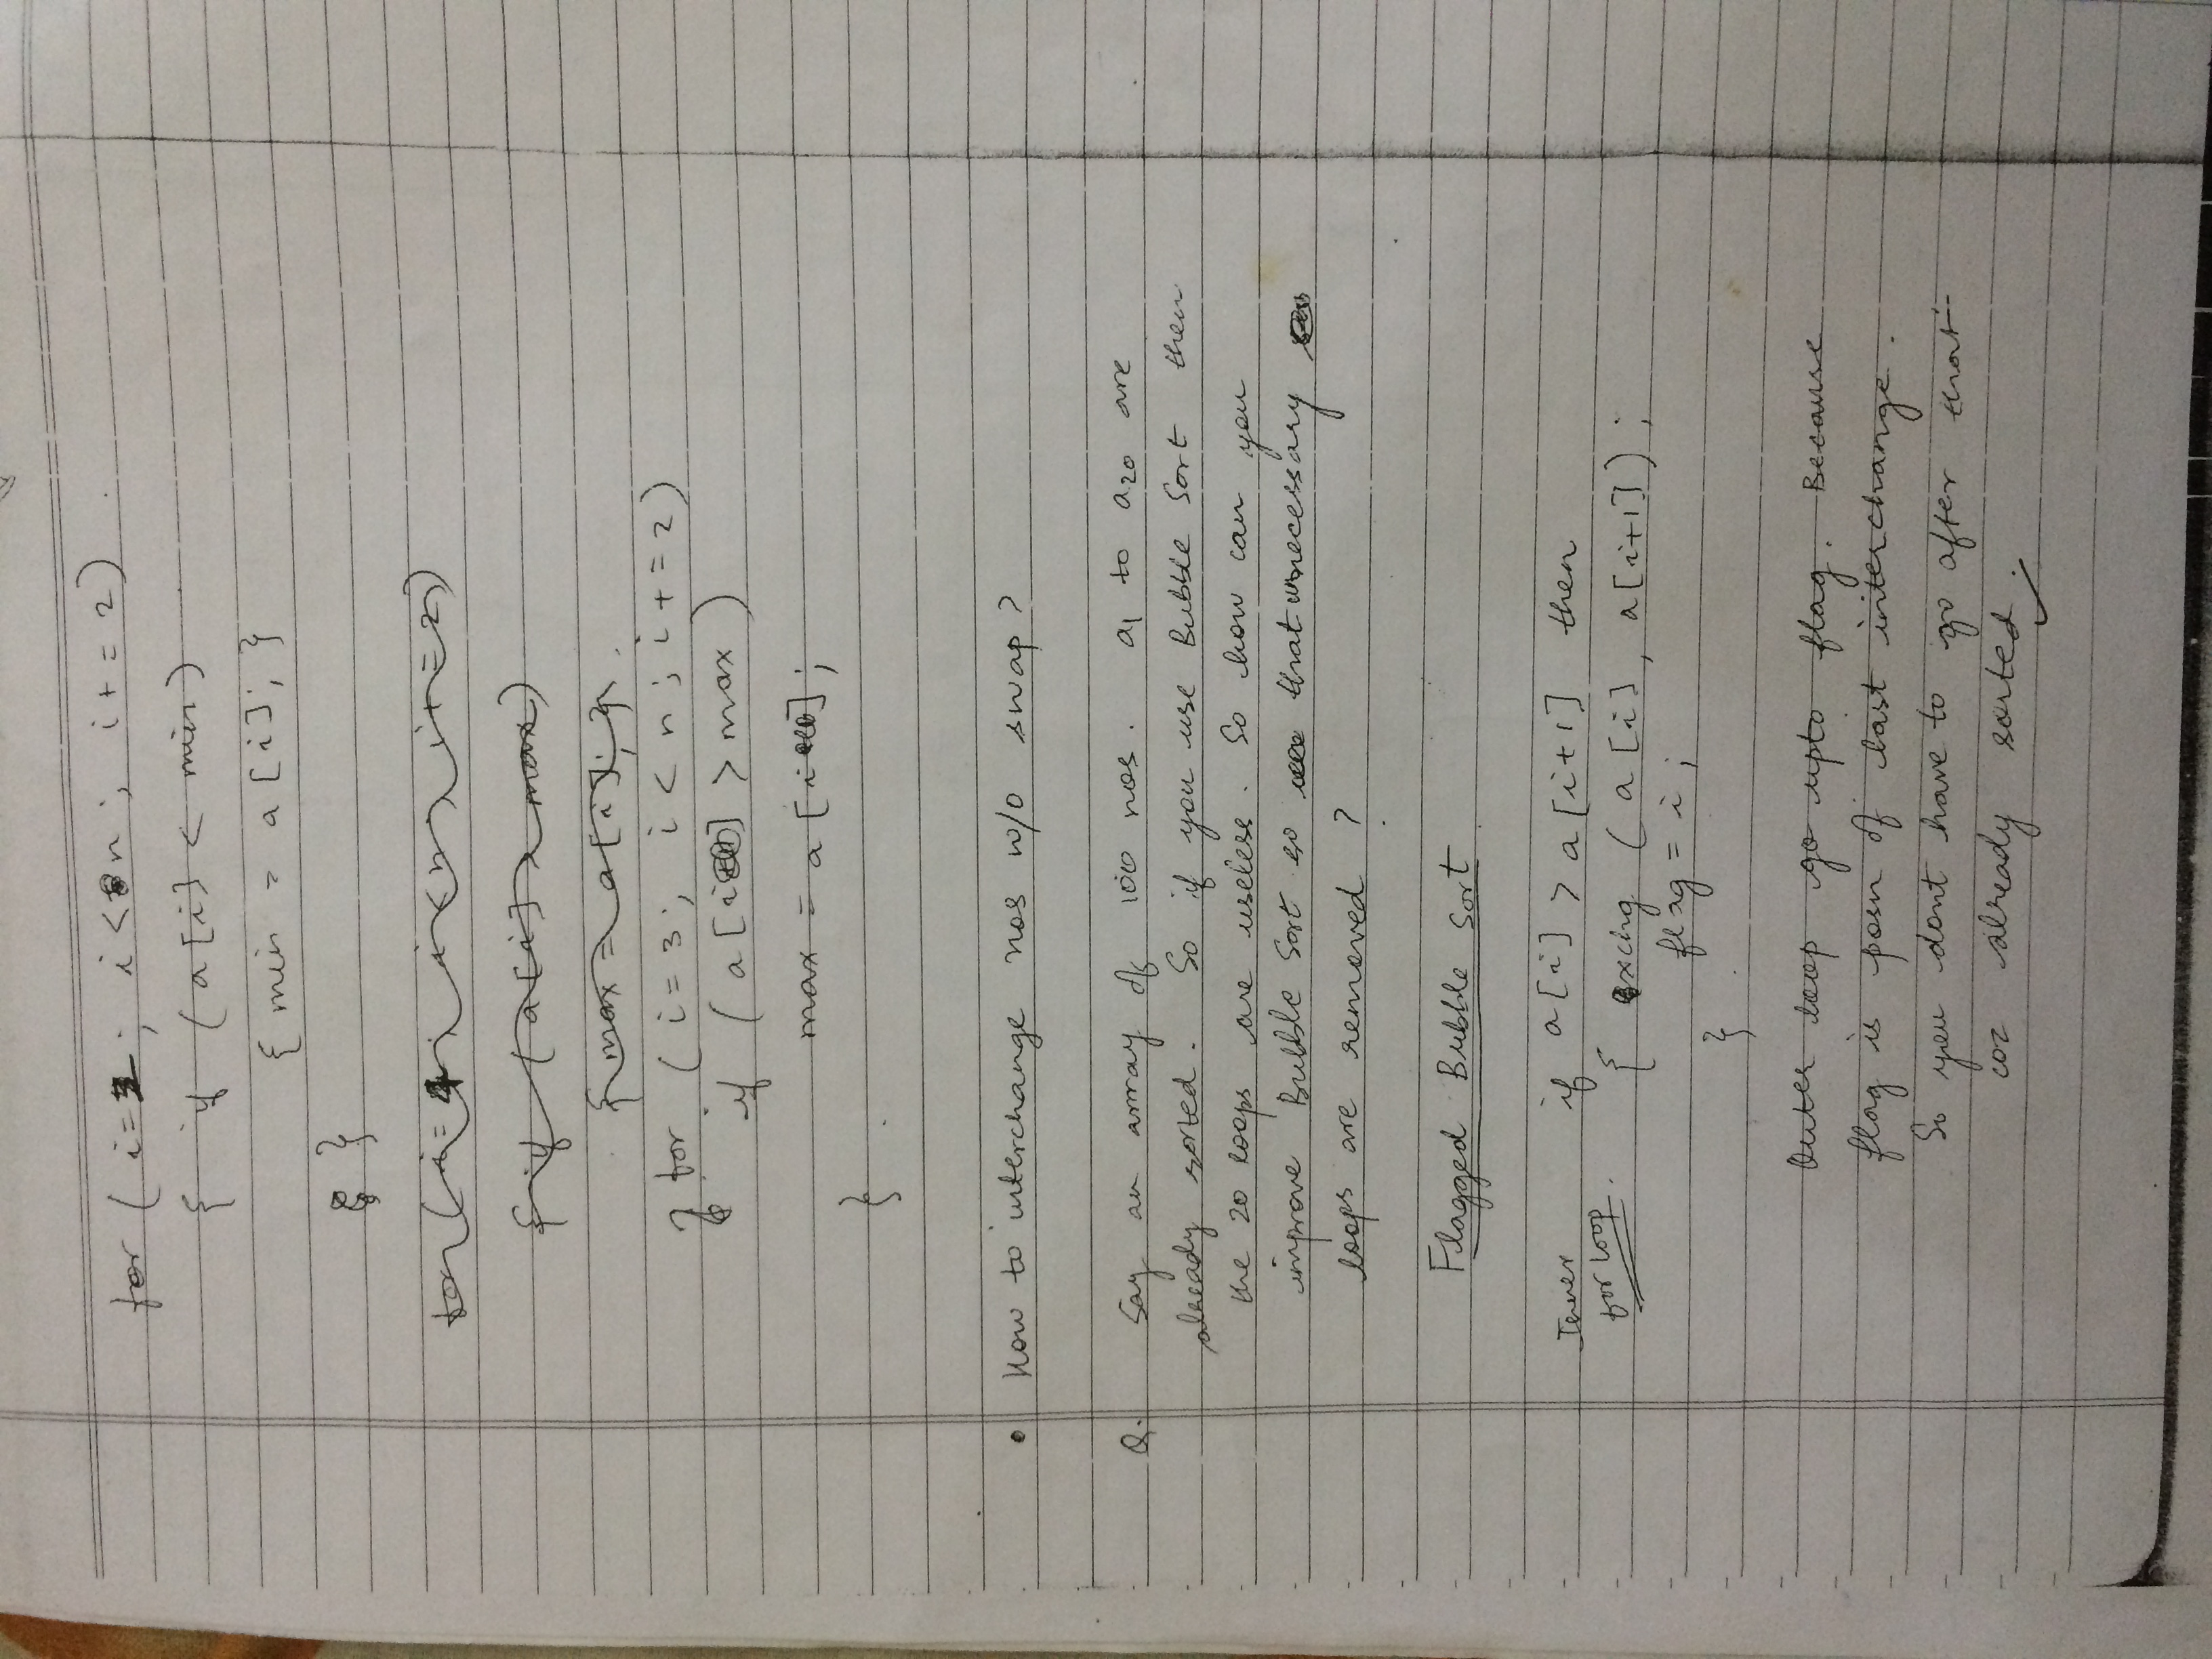 for ( i=2 ; i < n ; i += 2 )
{ if ( a[i] < min )
{ min = a[i]; }
}
for ( i=4; i<n; i+=2 )
{ if ( a[i] > max )
{ max = a[i]; }
} for ( i=3; i < n; i+=2 )
if ( a[i] > max )
max = a[i];
}
• How to interchange nos w/o swap?
Q. Say an array of 100 nos. a1 to a20 are
already sorted. So if you use Bubble Sort then
the 20 loops are useless. So how can you
improve Bubble Sort so that unnecessary
loops are removed ?
Flagged Bubble Sort
Inner
for loop.
if a[i] > a[i+1] then
{ exchg ( a[i], a[i+1] );
flag = i;
}
Outer loop go upto flag. Because
flag is posn of last interchange.
So you dont have to go after that
coz already sorted.